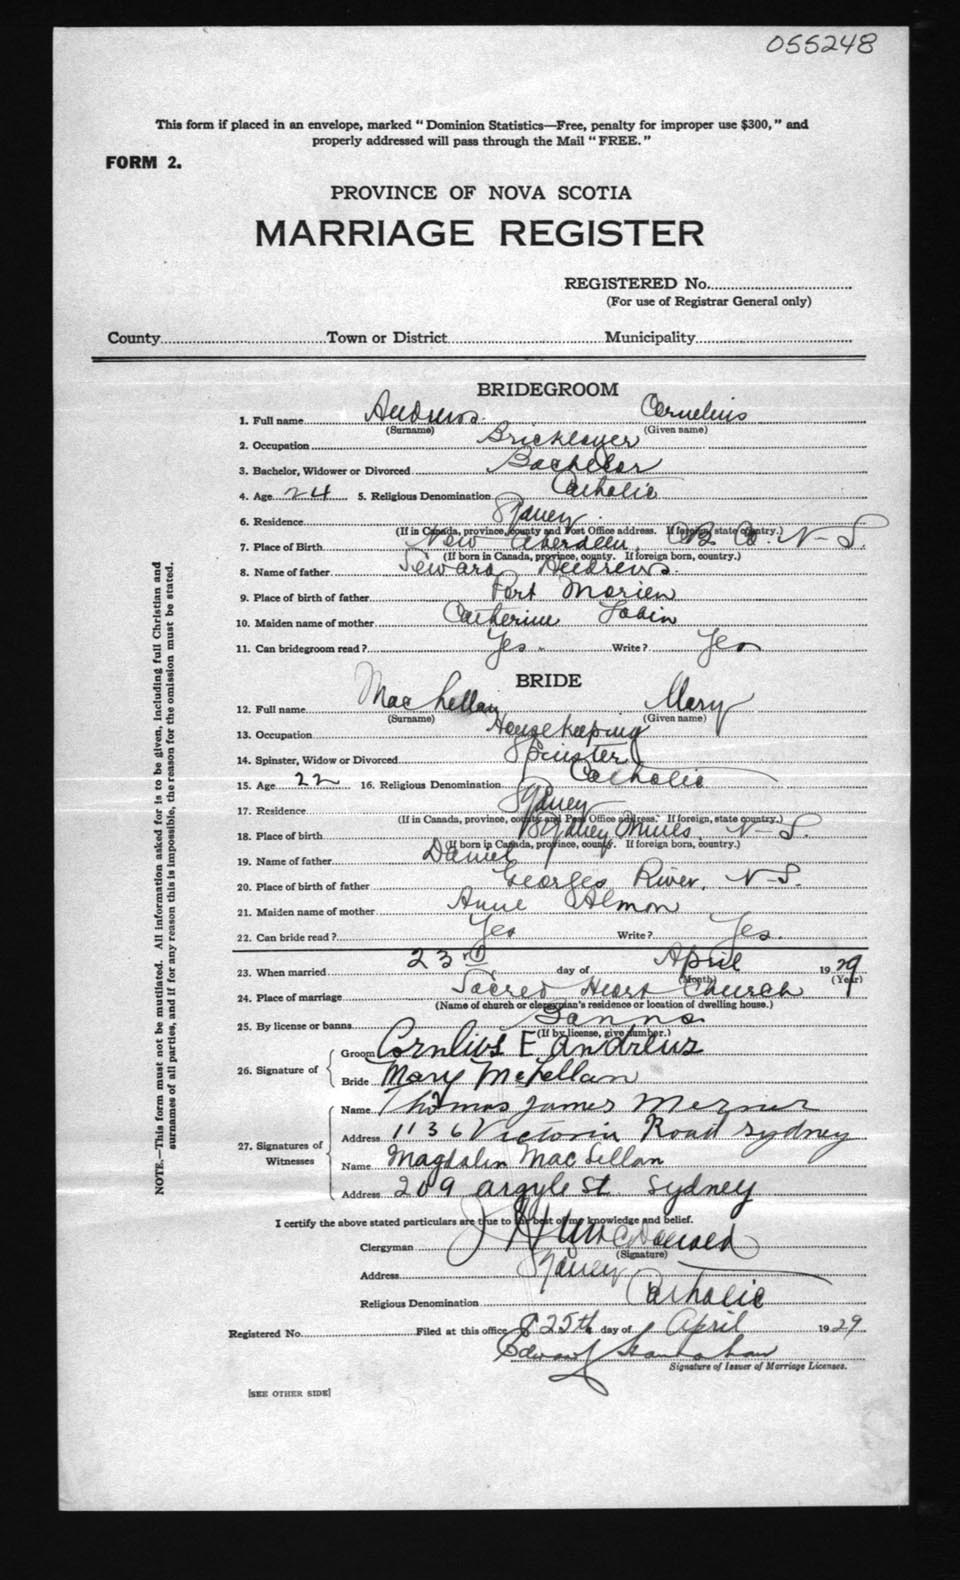 055248
This form if placed in an envelope, marked "Dominion Statistics—Free, penalty for improper use $300," and
properly addressed will pass through the Mail "FREE."
FORM 2.
PROVINCE OF NOVA SCOTIA
MARRIAGE REGISTER
REGISTERED No.
(For use of Registrar General only)
County Town or District Municipality
NOTE.—This form must not be mutilated. All information asked for is to be given, including full Christian and
surnames of all parties, and if for any reason this is impossible, the reason for the omission must be stated.
BRIDEGROOM
1. Full name Andrews Cornelius
(Surname) (Given name)
2. Occupation Bricklayer
3. Bachelor, Widower or Divorced Bachelor
4. Age 24 5. Religious Denomination Catholic
6. Residence Sydney
(If in Canada, province, county and Post Office address. If foreign, state country.)
7. Place of Birth New Aberdeen, C. B. Co. N-S.
(If born in Canada, province, county. If foreign born, country.)
8. Name of father Andrews.
9. Place of birth of father Port Morien
10. Maiden name of mother Catherine Tobin
11. Can bridegroom read? Yes Write? Yes
BRIDE
12. Full name MacLellan Mary
(Surname) (Given name)
13. Occupation Housekeeping
14. Spinster, Widow or Divorced Spinster
15. Age 22 16. Religious Denomination Catholic
17. Residence Sydney
(If in Canada, province, county and Post Office address. If foreign, state country.)
18. Place of birth Sydney Mines, N-S.
(If born in Canada, province, county. If foreign born, country.)
19. Name of father Daniel
20. Place of birth of father Georges River, N-S.
21. Maiden name of mother Anne Almon
22. Can bride read? Yes Write? Yes.
23. When married 23rd day of April 1929
(Month) (Year)
24. Place of marriage Sacred Heart Church
(Name of church or clergyman's residence or location of dwelling house.)
25. By license or banns Banns
(If by license, give number.)
26. Signature of
Groom Cornlius E Andrews
Bride Mary McLellan
27. Signatures of Witnesses
Name Thomas James
Address 1136 Victoria Road Sydney
Name Magdalin MacLellan
Address 209 argyle St. Sydney
I certify the above stated particulars are true to the best of my knowledge and belief.
Clergyman McDonald
(Signature)
Address Sydney
Religious Denomination Catholic
Registered No. Filed at this office 25th day of April 1929
Edward
Signature of Issuer of Marriage Licenses.
[SEE OTHER SIDE]